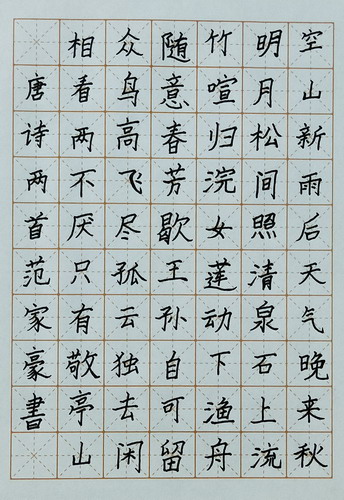 空山新雨后天气晚来秋
明月松间照清泉石上流
竹喧归浣女莲动下渔舟
随意春芳歇王孙自可留
众鸟高飞尽孤云独去闲
相看两不厌只有敬亭山
唐诗两首范家豪書